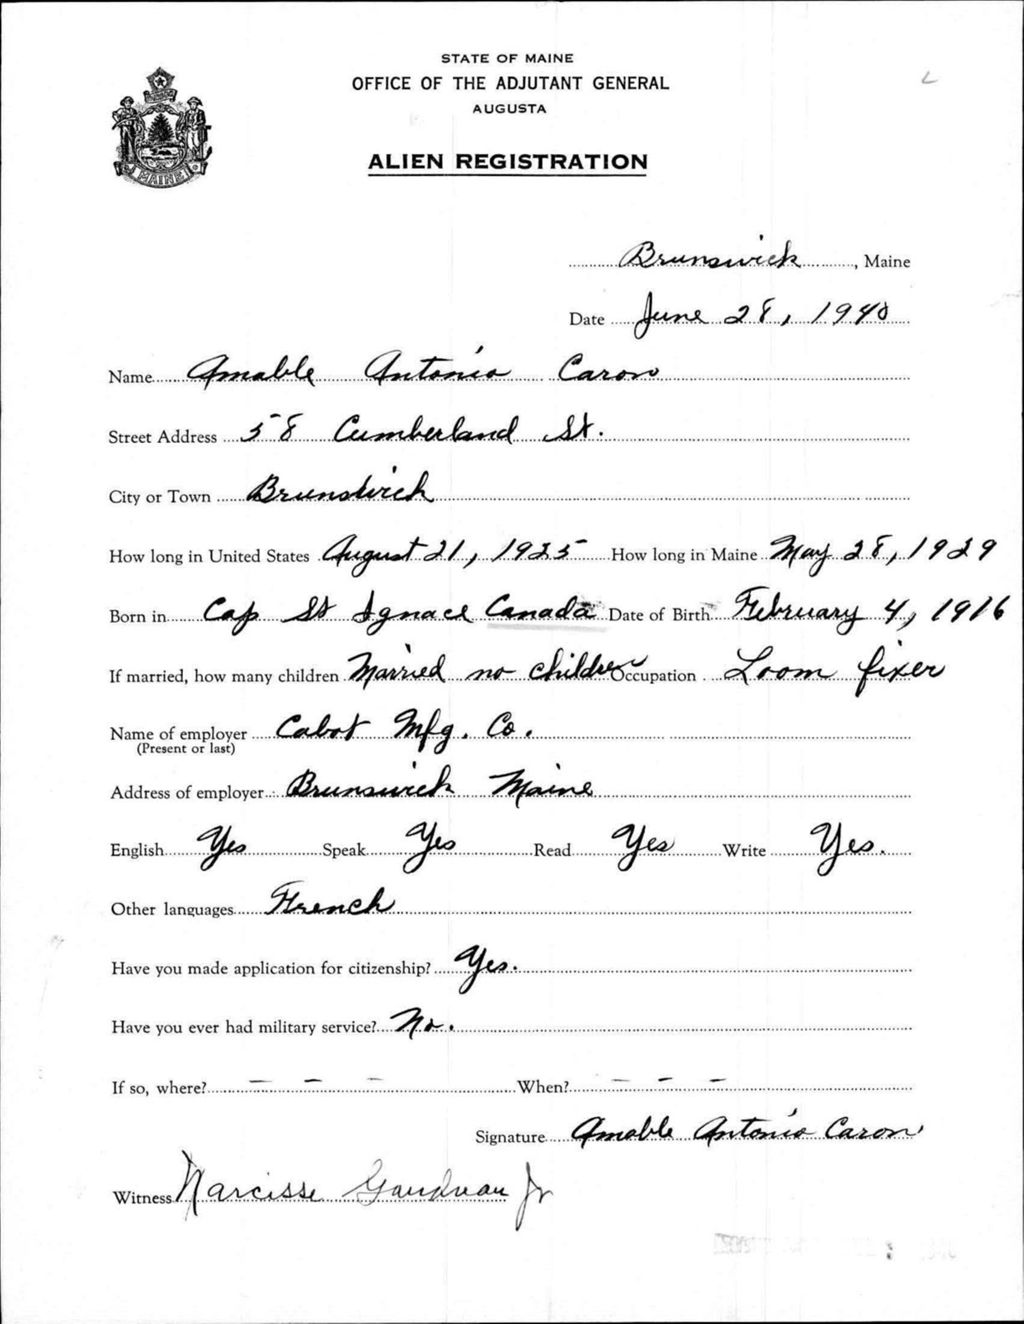 STATE OF MAINE
OFFICE OF THE ADJUTANT GENERAL
AUGUSTA
ALIEN REGISTRATION
MAINE
Brunswick, Maine
Date June 28, 1940
Name Amable Antonio Caron
Street Address 58 Cumberland St.
City or Town Brunswick
How long in United States August 21, 1925 How long in Maine May 28, 1929
Born in Cap St Ignace Canada Date of Birth February 4, 1916
If married, how many children Married no children Occupation Loom fixer
Name of employer Cabot Mfg. Co.
(Present or last)
Address of employer Brunswick Maine
English Yes Speak Yes Read Yes Write Yes.
Other languages French
Have you made application for citizenship? Yes.
Have you ever had military service? No.
If so, where? — — — When? — — —
Signature Amable Antonio Caron
Witness Narcisse Jr